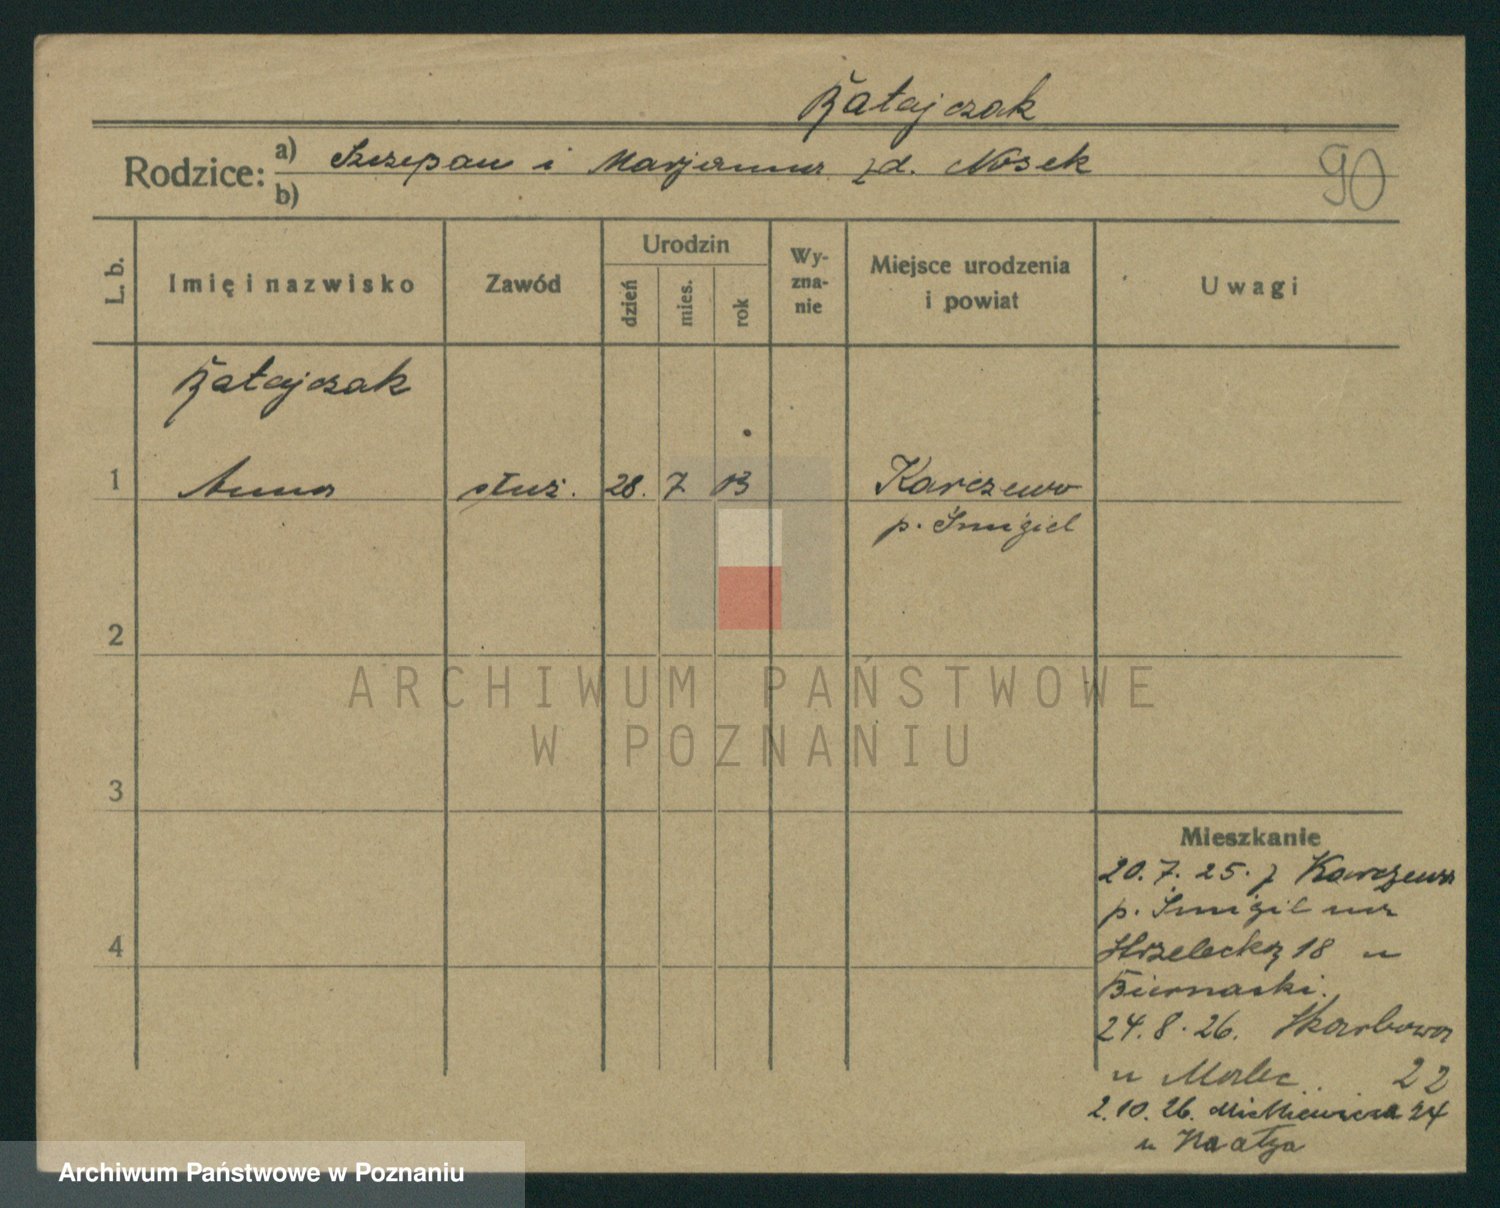 Ratajczak
Rodzice: a) Szczepan i Marjanna zd. Nosek
b)
90
L. b.
Imię i nazwisko
Zawód
Urodzin
dzień
mies.
rok
Wy-
zna-
nie
Miejsce urodzenia
i powiat
Uwagi
Ratajczak
1 Anna służ. 28. 7 03 Karczewo
p. Śmigiel
2
3
4
ARCHIWUM PAŃSTWOWE
W POZNANIU
Mieszkanie
20.7.25. z Karczewa
p. Śmigiel na
Strzelecką 18 u
Biernacki.
24.8.26. Skarbowa
u Malec. 22
2.10.26. Mickiewicza 24
u
Archiwum Państwowe w Poznaniu